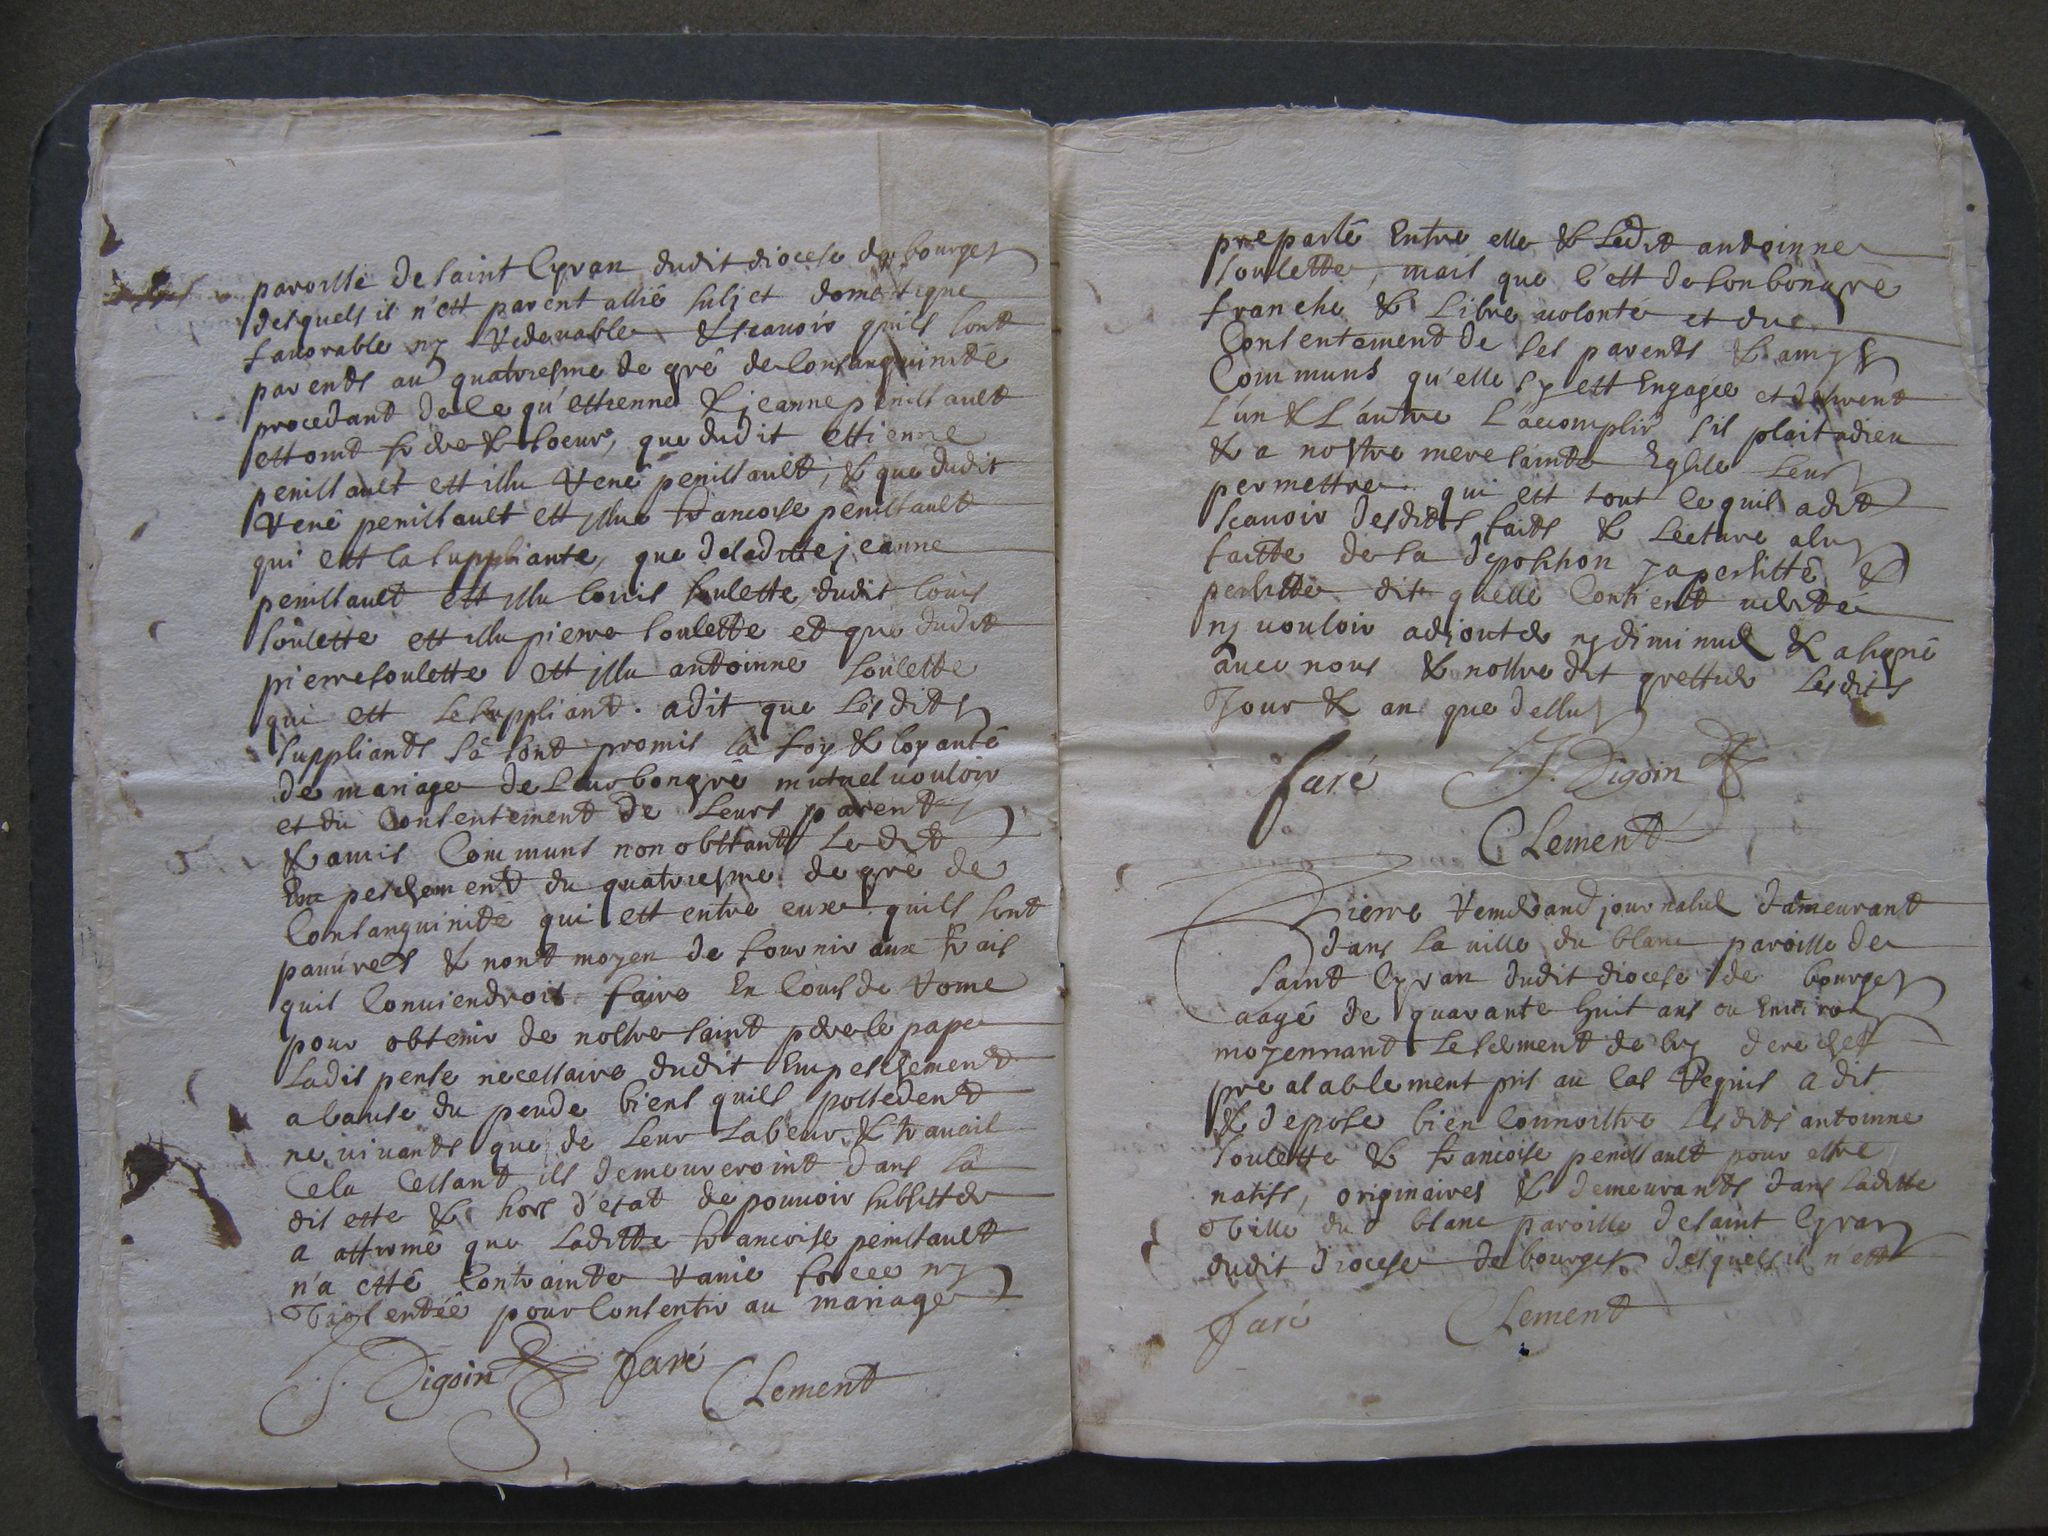 paroisse de saint Cyran dudit diocese de bourges
desquels il n'est parent allié subjet domestique
favorable ny redevable & scavoir quils sont
parents au quatriesme degré de Consanguinité
procedant de ce qu'estienne & jeanne penissault
estoint frere & soeur, que dudit estienne
penissault est issu rené penissault, & que dudit
rené penissault est issue francoise penissault
qui est la suppliante, que de laditte jeanne
penissault est issu louis soulette dudit louis
soulette est issu pierre soulette et que dudit
pierre soulette est issu antoinne soulette
qui est le suppliant. a dit que lesdits
suppliants se sont promis la foy & loyauté
de mariage de leur bon gré mutuel vouloir
et du Consentement de leurs parents
& amis Communs non obstant ledit
Empeschement du quatriesme degré de
Consanguinité qui est entre eux quils sont
pauvres & nont moyen de fournir aux frais
quil Conviendroit faire En Cour de rome
pour obtenir de nostre saint pere le pape
la dispense necessaire dudit Empeschement
a cause du peu de biens quils possedent
ne vivants que de leur labeur & travail
Cela Cessant ils demeureroint dans la
disette & hors d'estat de pouvoir subsister
a affirmé que laditte francoise penissault
n'a esté Contrainte ravie forcee ny
violentée pour Consentir au mariage
J. Digoin faré
Clement
preparlé Entre elle & ledit antoinne
soulette, mais que c'est de son bon gré
franche & libre volonté et du
Consentement de ses parents & amys
Communs qu'elle sy est Engagée et desirent
l'un & l'autre l'accomplir sil plait a dieu
& a nostre mere sainte Eglise leur
permettre qui est tout ce quil a dit
scavoir desdits faits & lecture a luy
faitte de sa deposition y a persisté &
persiste dit quelle Contient verité
ny vouloir adjouter ny diminuer & a signé
avec nous & nostre dit greffier lesdits
Jour & an que dessus
faré J. Digoin
Clement
Pierre journalier demeurant
dans la ville du blanc paroisse de
saint Cyran dudit diocese de bourges
aagé de quarante huit ans ou Environ
moyennant le serment de luy derechef
prealablement pris au Cas requis a dit
& depose bien Connoistre lesdits antoinne
soulette & francoise penissault pour estre
natifs, originaires & demeurants dans laditte
ville du blanc paroisse de saint Cyran
dudit diocese de bourges desquels il n'est
faré Clement